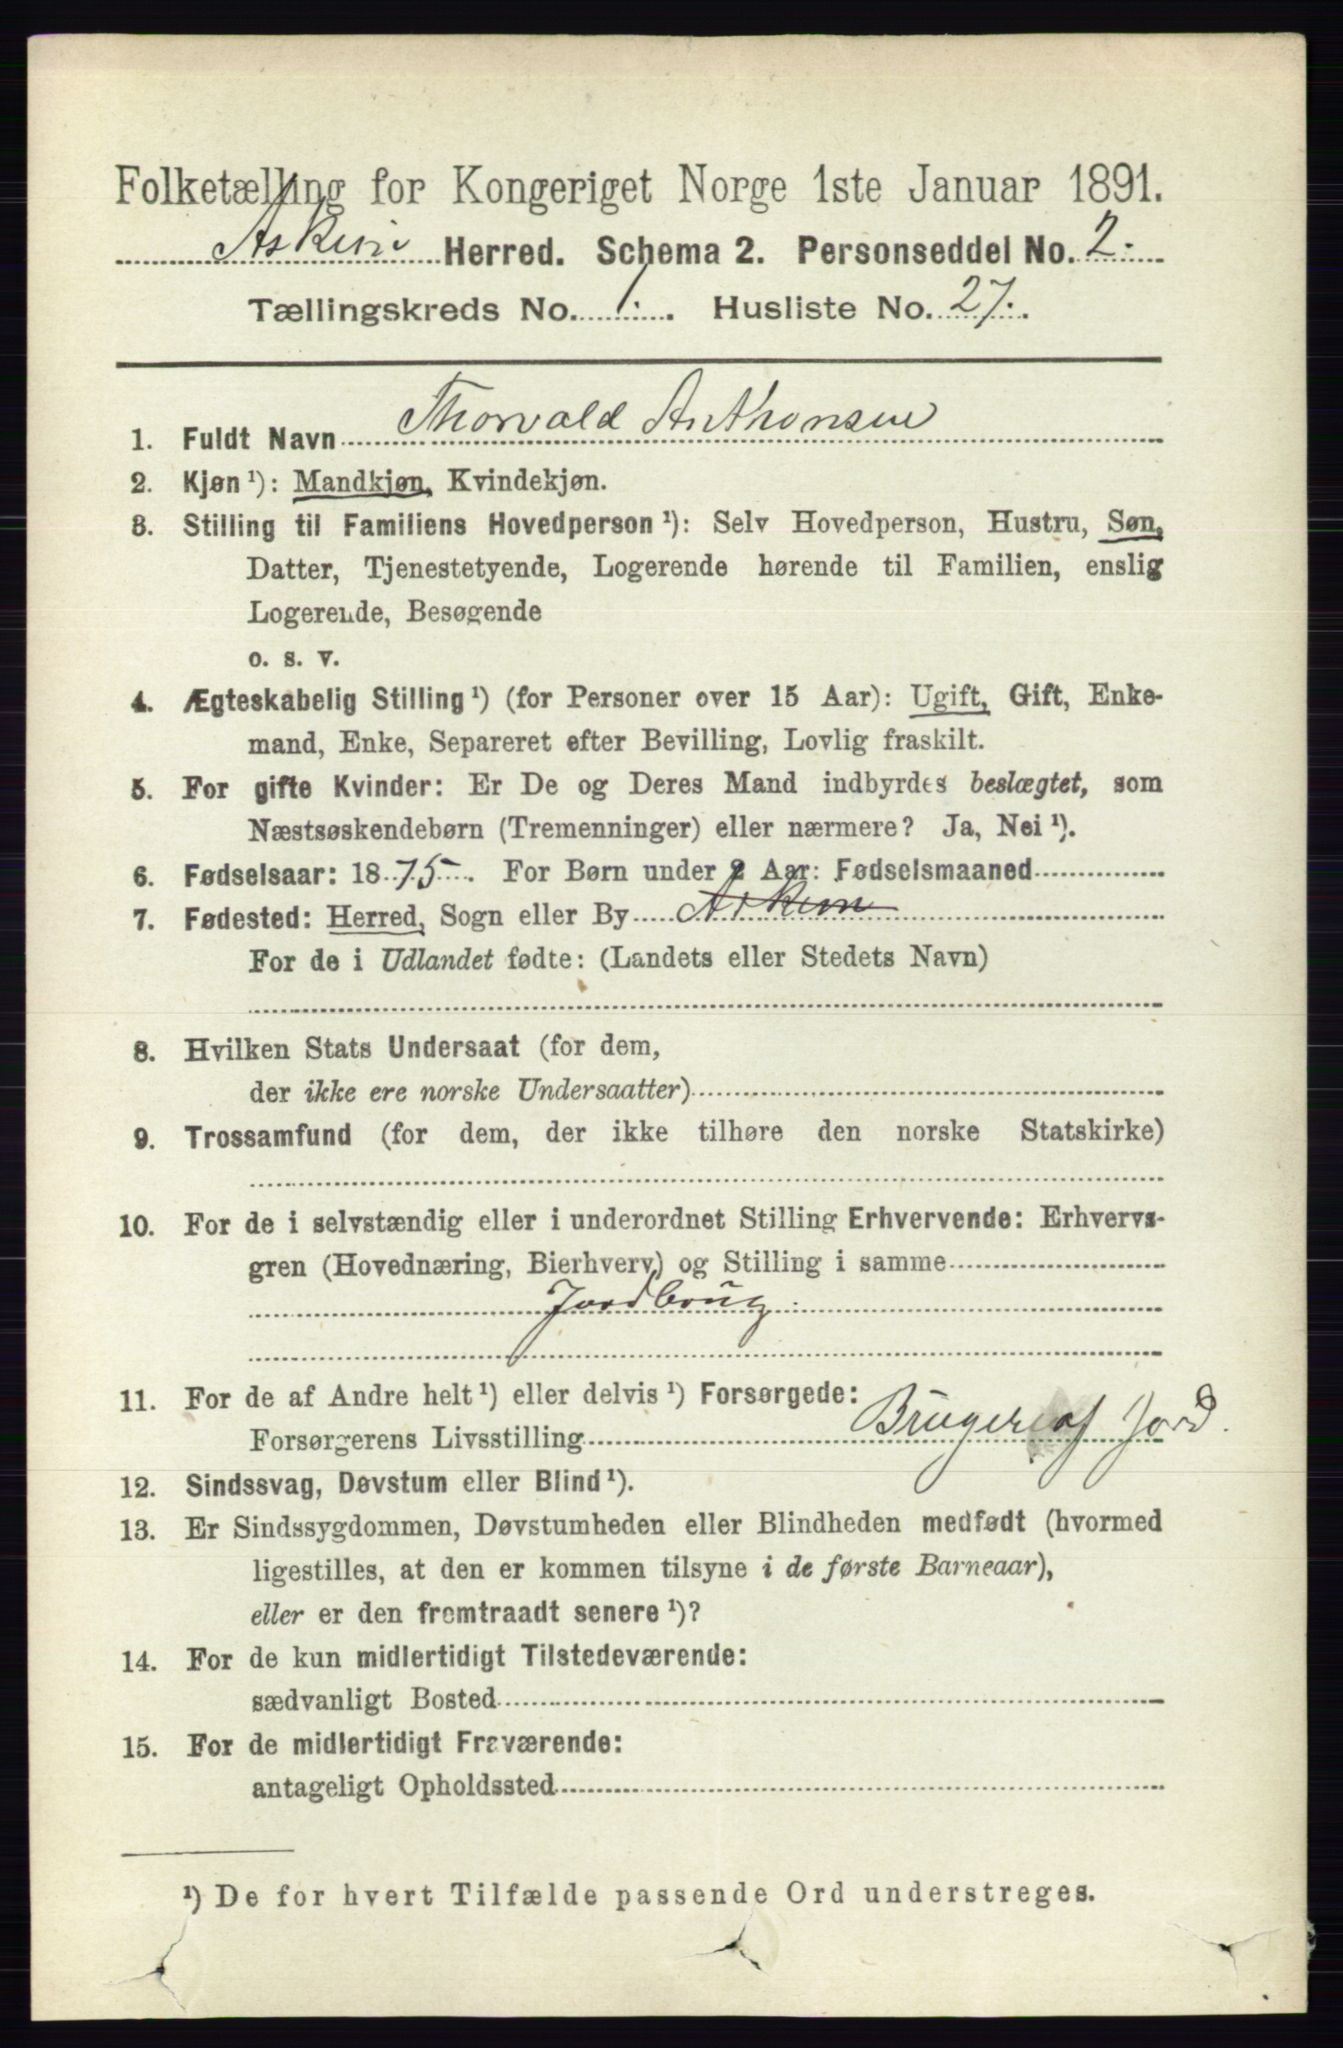 Folketælling for Kongeriget Norge 1ste Januar 1891.
Askim Herred. Schema 2. Personseddel No. 2.
Tællingskreds No. 1. Husliste No. 27.
1. Fuldt Navn Thorvald Anthonsen
2. Kjøn ¹): Mandkjøn, Kvindekjøn.
3. Stilling til Familiens Hovedperson ¹): Selv Hovedperson, Hustru, Søn,
Datter, Tjenestetyende, Logerende hørende til Familien, enslig
Logerende, Besøgende
o. s. v.
4. Ægteskabelig Stilling ¹) (for Personer over 15 Aar): Ugift, Gift, Enke-
mand, Enke, Separeret efter Bevilling, Lovlig fraskilt.
5. For gifte Kvinder: Er De og Deres Mand indbyrdes beslægtet, som
Næstsøskendebørn (Tremenninger) eller nærmere? Ja, Nei ¹).
6. Fødselsaar: 1875. For Børn under 2 Aar: Fødselsmaaned
7. Fødested: Herred, Sogn eller By Askim
For de i Udlandet fødte: (Landets eller Stedets Navn)
8. Hvilken Stats Undersaat (for dem,
der ikke ere norske Undersaatter)
9. Trossamfund (for dem, der ikke tilhøre den norske Statskirke)
10. For de i selvstændig eller i underordnet Stilling Erhvervende: Erhvervs-
gren (Hovednæring, Bierhverv) og Stilling i samme
Jordbrug.
11. For de af Andre helt ¹) eller delvis ¹) Forsørgede:
Forsørgerens Livsstilling Bruger af Jord.
12. Sindssvag, Døvstum eller Blind ¹).
13. Er Sindssygdommen, Døvstumheden eller Blindheden medfødt (hvormed
ligestilles, at den er kommen tilsyne i de første Barneaar),
eller er den fremtraadt senere ¹)?
14. For de kun midlertidigt Tilstedeværende:
sædvanligt Bosted
15. For de midlertidigt Fraværende:
antageligt Opholdssted
¹) De for hvert Tilfælde passende Ord understreges.